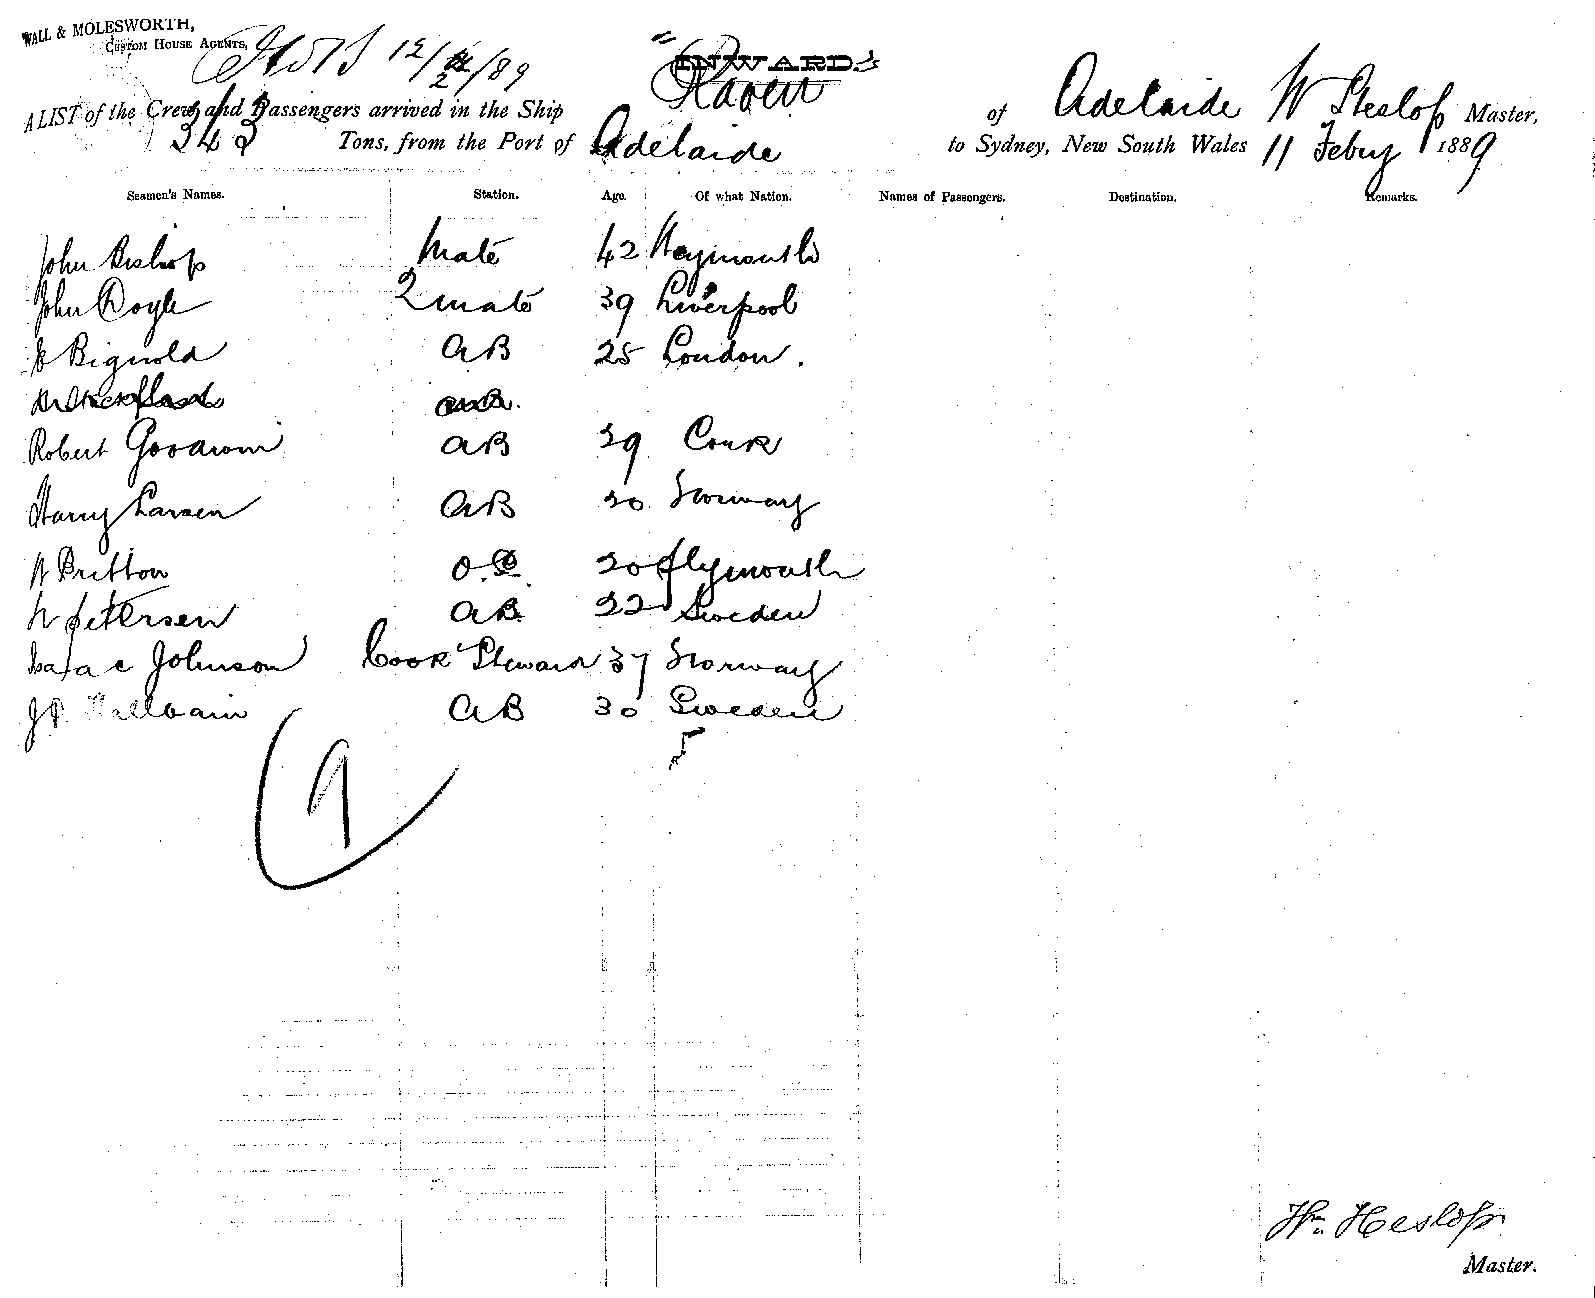 WALL & MOLESWORTH,
CUSTOM HOUSE AGENTS,
12/2/89
INWARDS
"Raven
A LIST of the Crew and Passengers arrived in the Ship of Adelaide W Heslop Master,
343 Tons, from the Port of Adelaide to Sydney, New South Wales 11 Febry 1889
Seamen's Names. Station. Age. Of what Nation. Names of Passengers. Destination. Remarks.
John Bishop Mate 42 Weymouth
John Doyle 2 mate 39 Liverpool
Bignold AB 25 London.
AB.
Robert Goodwin AB 29 Cork
Harry Larsen AB 20 Norway
W Britton O.S. 20 Plymouth
N Petersen AB 22 Sweden
Isaac Johnson Cook Steward 37 Norway
AB 30 Sweden
9
Wm. Heslop
Master.